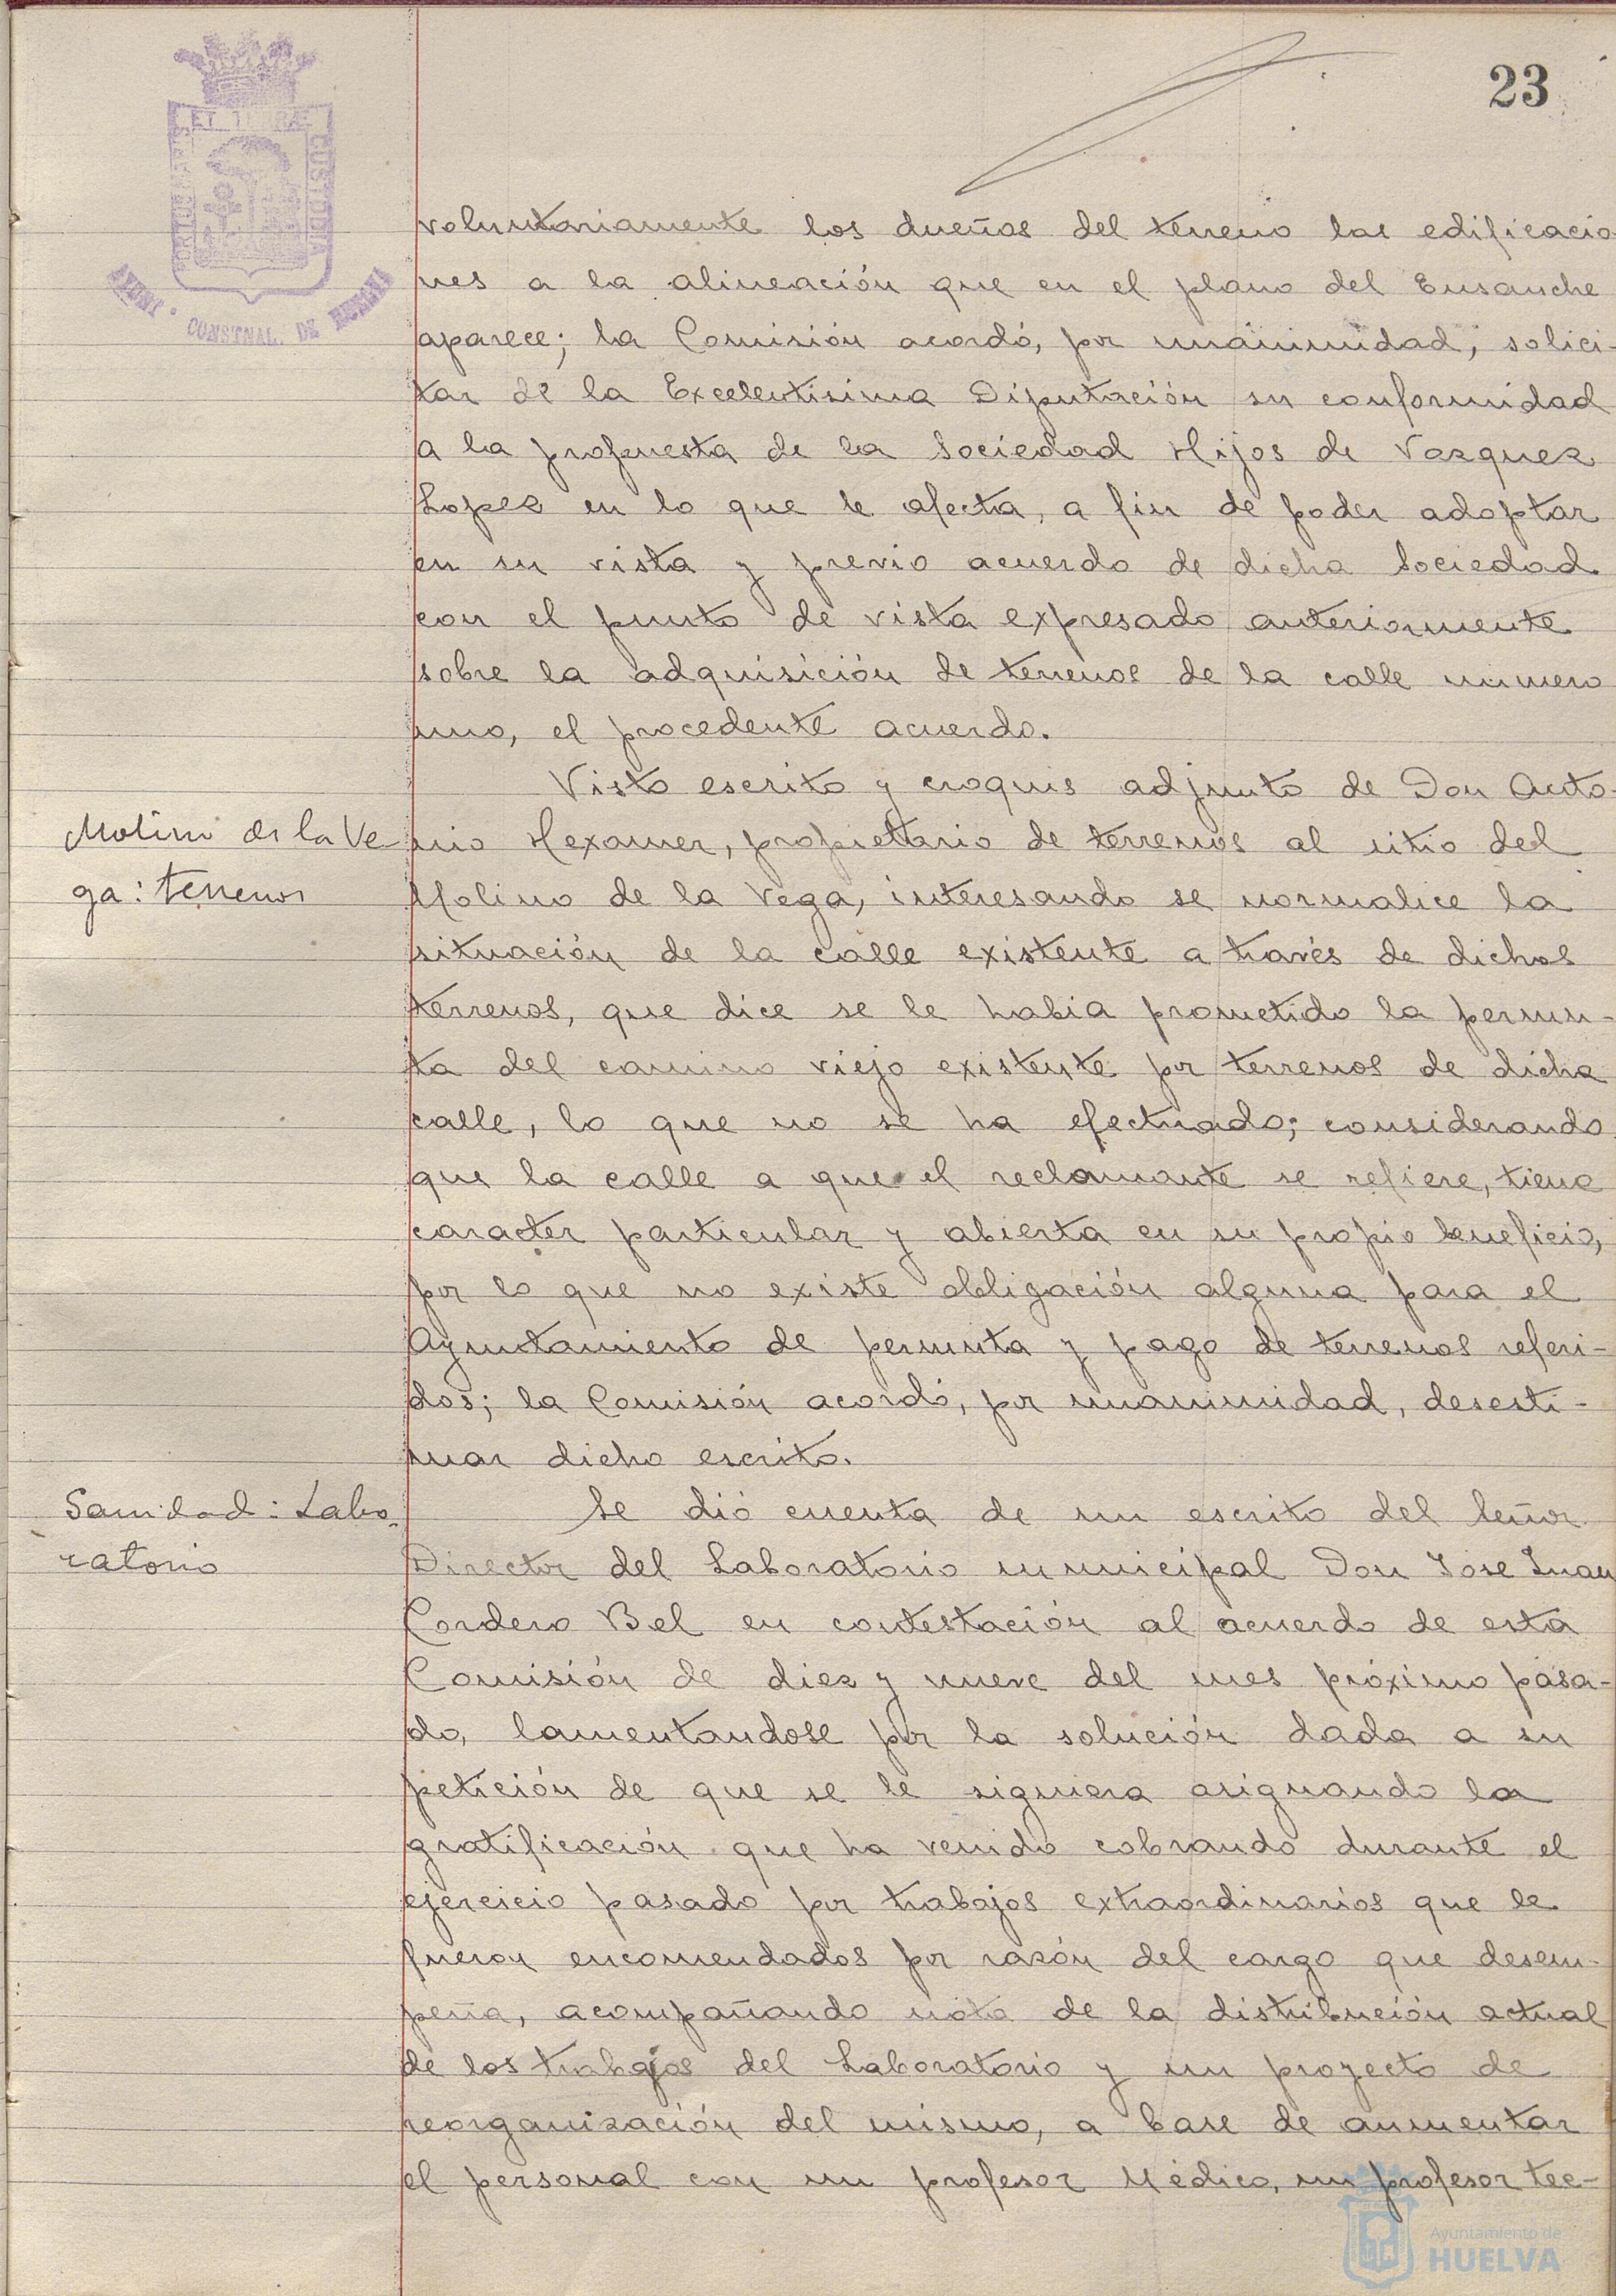 23
ET TERRÆ
CUSTODIA
CONSTNAL. DE HUELVA
voluntariamente los dueños del terreno las edificacio
nes a la alineación que en el plano del Ensanche
aparece; la Comisión acordó, por unanimidad, solici-
tar de la Excelentisima Diputación su conformidad
a la propuesta de la Sociedad Hijos de Vazquez
Lopez en lo que le afecta, a fin de poder adoptar
en su vista y previo acuerdo de dicha Sociedad
con el punto de vista expresado anteriormente
sobre la adquisición de terrenos de la calle número
uno, el procedente acuerdo.
Visto escrito y croquis adjunto de Don Anto-
Molino de la Ve-
nio Hexamer, propietario de terrenos al sitio del
ga: terrenos
Molino de la Vega, interesando se normalice la
situación de la calle existente a través de dichos
terrenos, que dice se le habia prometido la permu-
ta del camino viejo existente por terrenos de dicha
calle, lo que no se ha efectuado; considerando
que la calle a que el reclamante se refiere, tiene
caracter particular y abierta en su propio beneficio,
por lo que no existe obligación alguna para el
Ayuntamiento de permuta y pago de terrenos referi-
dos; la Comisión acordó, por unanimidad, desesti-
mar dicho escrito.
Sanidad: Labo-
Se dió cuenta de un escrito del Señor
ratorio
Director del Laboratorio municipal Don Jose Juan
Cordero Bel en contestación al acuerdo de esta
Comisión de diez y nueve del mes próximo pasa-
do, lamentandose por la solución dada a su
petición de que se le siguiera asignando la
gratificación que ha venido cobrando durante el
ejercicio pasado por trabajos extraordinarios que le
fueron encomendados por razón del cargo que desem-
peña, acompañando nota de la distribución actual
de los trabajos del Laboratorio y un proyecto de
reorganización del mismo, a base de aumentar
el personal con un profesor Médico, un profesor tec-
Ayuntamiento de
HUELVA